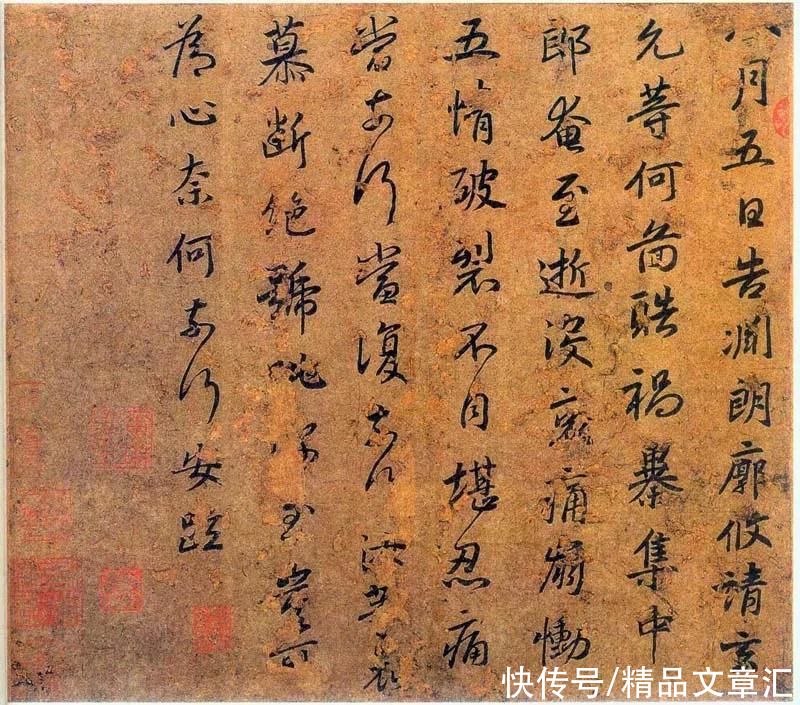 八月五日告淵朗廓攸靖玄
允等何圖酷禍暴集中
郎奄至逝沒哀痛崩慟
五情破裂不自堪忍痛
當奈何當復奈何汝等哀
慕斷絕號咷深至豈可
為心奈何奈何安疏
快传号/精品文章汇